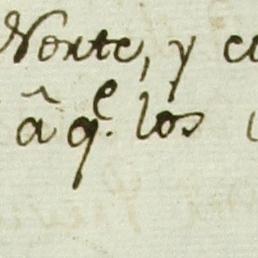 Norte, y
â q.ᵉ los